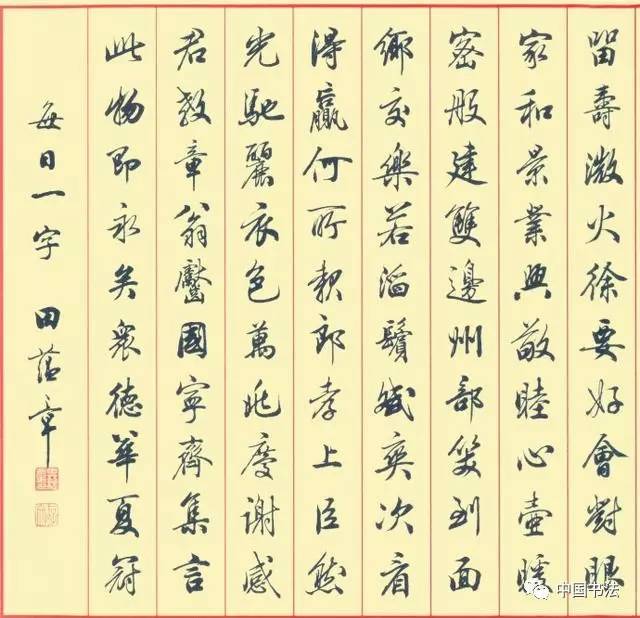 留壽激火徐要好會對眼
家和景業興敬睦心壺
密般建雙邊州部笑到面
鄉交樂若滔鬢爽次看
得贏何所郎孝上臣然
光馳麗衣色萬兆度謝感
君教章翁國寧齊集言
此物即永矣衆德華夏冠
每日一字 田蘊章
中国书法